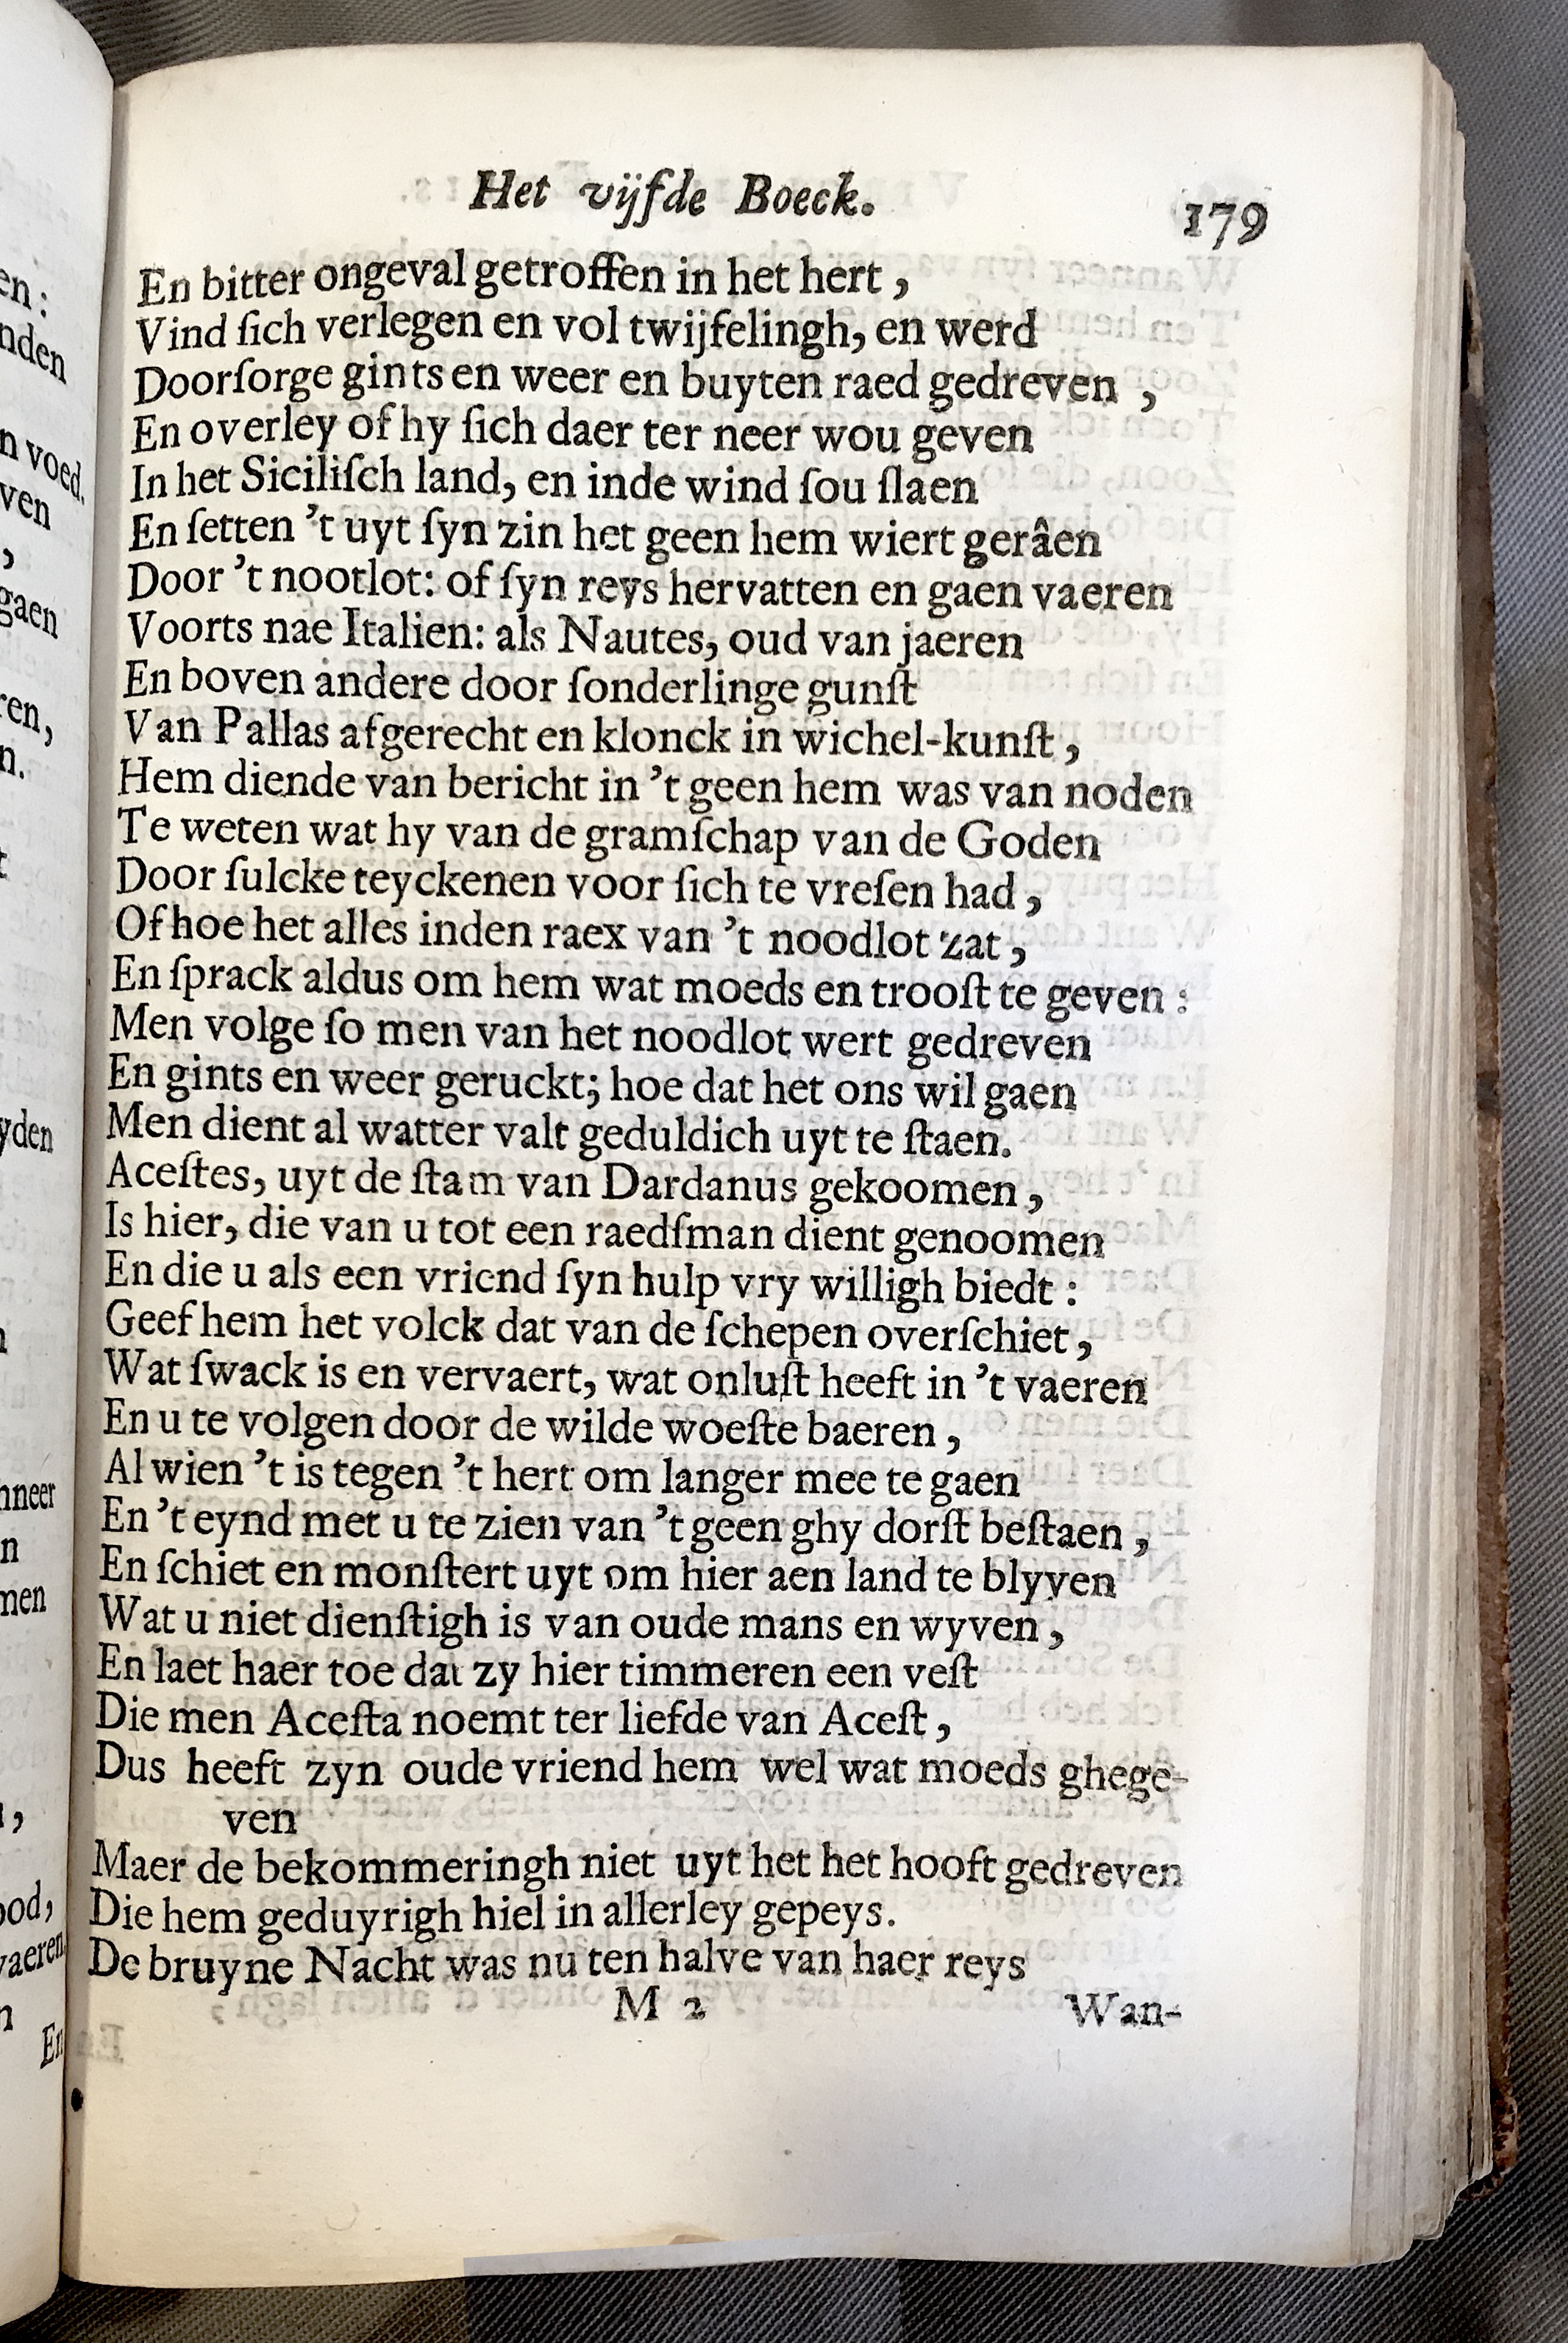 Het vijfde Boeck.
179
En bitter ongeval getroffen in het hert,
Vind ſich verlegen en vol twijfelingh, en werd
Doorſorge gints en weer en buyten raed gedreven,
En overley of hy ſich daer ter neer wou geven
In het Siciliſch land, en inde wind ſou ſlaen
En ſetten 't uyt ſyn zin het geen hem wiert gerâen
Door 't nootlot: of ſyn reys hervatten en gaen vaeren
Voorts nae Italien: als Nautes, oud van jaeren
En boven andere door ſonderlinge gunſt
Van Pallas afgerecht en klonck in wichel-kunſt,
Hem diende van bericht in 't geen hem was van noden
Te weten wat hy van de gramſchap van de Goden
Door ſulcke teyckenen voor ſich te vreſen had,
Of hoe het alles inden raex van 't noodlot zat,
En ſprack aldus om hem wat moeds en trooſt te geven:
Men volge ſo men van het noodlot wert gedreven
En gints en weer geruckt; hoe dat het ons wil gaen
Men dient al watter valt geduldich uyt te ſtaen.
Aceſtes, uyt de ſtam van Dardanus gekoomen,
Is hier, die van u tot een raedſman dient genoomen
En die u als een vriend ſyn hulp vry willigh biedt:
Geef hem het volck dat van de ſchepen overſchiet,
Wat ſwack is en vervaert, wat onluſt heeft in 't vaeren
En u te volgen door de wilde woeſte baeren,
Al wien 't is tegen 't hert om langer mee te gaen
En 't eynd met u te zien van 't geen ghy dorſt beſtaen,
En ſchiet en monſtert uyt om hier aen land te blyven
Wat u niet dienſtigh is van oude mans en wyven,
En laet haer toe dat zy hier timmeren een veſt
Die men Aceſta noemt ter liefde van Aceſt,
Dus heeft zyn oude vriend hem wel wat moeds ghege-
ven
Maer de bekommeringh niet uyt het het hooft gedreven
Die hem geduyrigh hiel in allerley gepeys.
De bruyne Nacht was nu ten halve van haer reys
M 2
Wan-